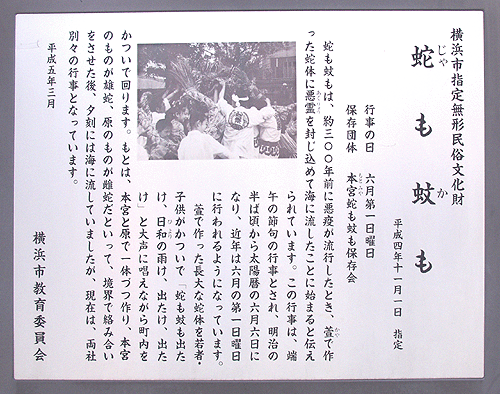 横浜市指定無形民俗文化財
蛇も蚊も
じゃ
か
平成四年十一月一日 指定
行事の日 六月第一日曜日
保存団体 本宮蛇も蚊も保存会
もとみや
蛇も蚊もは、約三〇〇年前に悪疫が流行したとき、萱で作
かや
った蛇体に悪霊を封じ込めて海に流したことに始まると伝え
られています。この行事は、端
午の節句の行事とされ、明治の
半ば頃から太陽暦の六月六日に
なり、近年は六月の第一日曜日
に行われるようになっています。
萱で作った長大な蛇体を若者・
子供がかついで「蛇も蚊も出た
け、日和の雨け、出たけ、出た
け」と大声に唱えながら町内を
かついで回ります。もとは、本宮と原で一体づつ作り、本宮
のものが雄蛇、原のものが雌蛇だといって、境界で絡み合い
をさせた後、夕刻には海に流していましたが、現在は、両社
別々の行事となっています。
平成五年三月
横浜市教育委員会